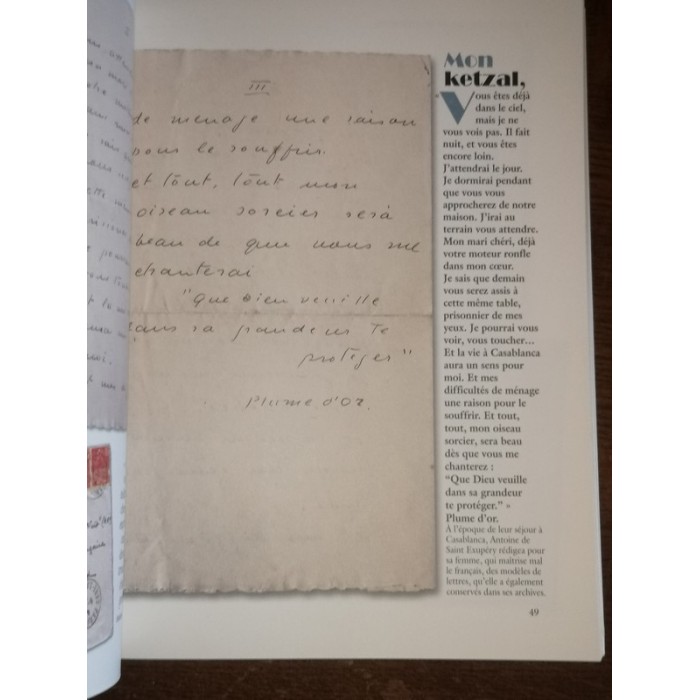 III
de menage une raison
pour le souffrir.
et tout, tout mon
oiseau sorcier sera
beau de que vous me
chanterai
"que Dieu veuille
dans sa grandeur te
proteger"
Plume d'or.
Mon
ketzal,
Vous êtes déjà
dans le ciel,
mais je ne
vous vois pas. Il fait
nuit, et vous êtes
encore loin.
J'attendrai le jour.
Je dormirai pendant
que vous vous
approcherez de notre
maison. J'irai au
terrain vous attendre.
Mon mari chéri, déjà
votre moteur ronfle
dans mon cœur.
Je sais que demain
vous serez assis à
cette même table,
prisonnier de mes
yeux. Je pourrai vous
voir, vous toucher...
Et la vie à Casablanca
aura un sens pour
moi. Et mes
difficultés de ménage
une raison pour le
souffrir. Et tout,
tout, mon oiseau
sorcier, sera beau
dès que vous me
chanterez :
"Que Dieu veuille
dans sa grandeur
te protéger." «
Plume d'or.
À l'époque de leur séjour à
Casablanca, Antoine de
Saint Exupéry rédigea pour
sa femme, qui maîtrise mal
le français, des modèles de
lettres, qu'elle a également
conservés dans ses archives.
49